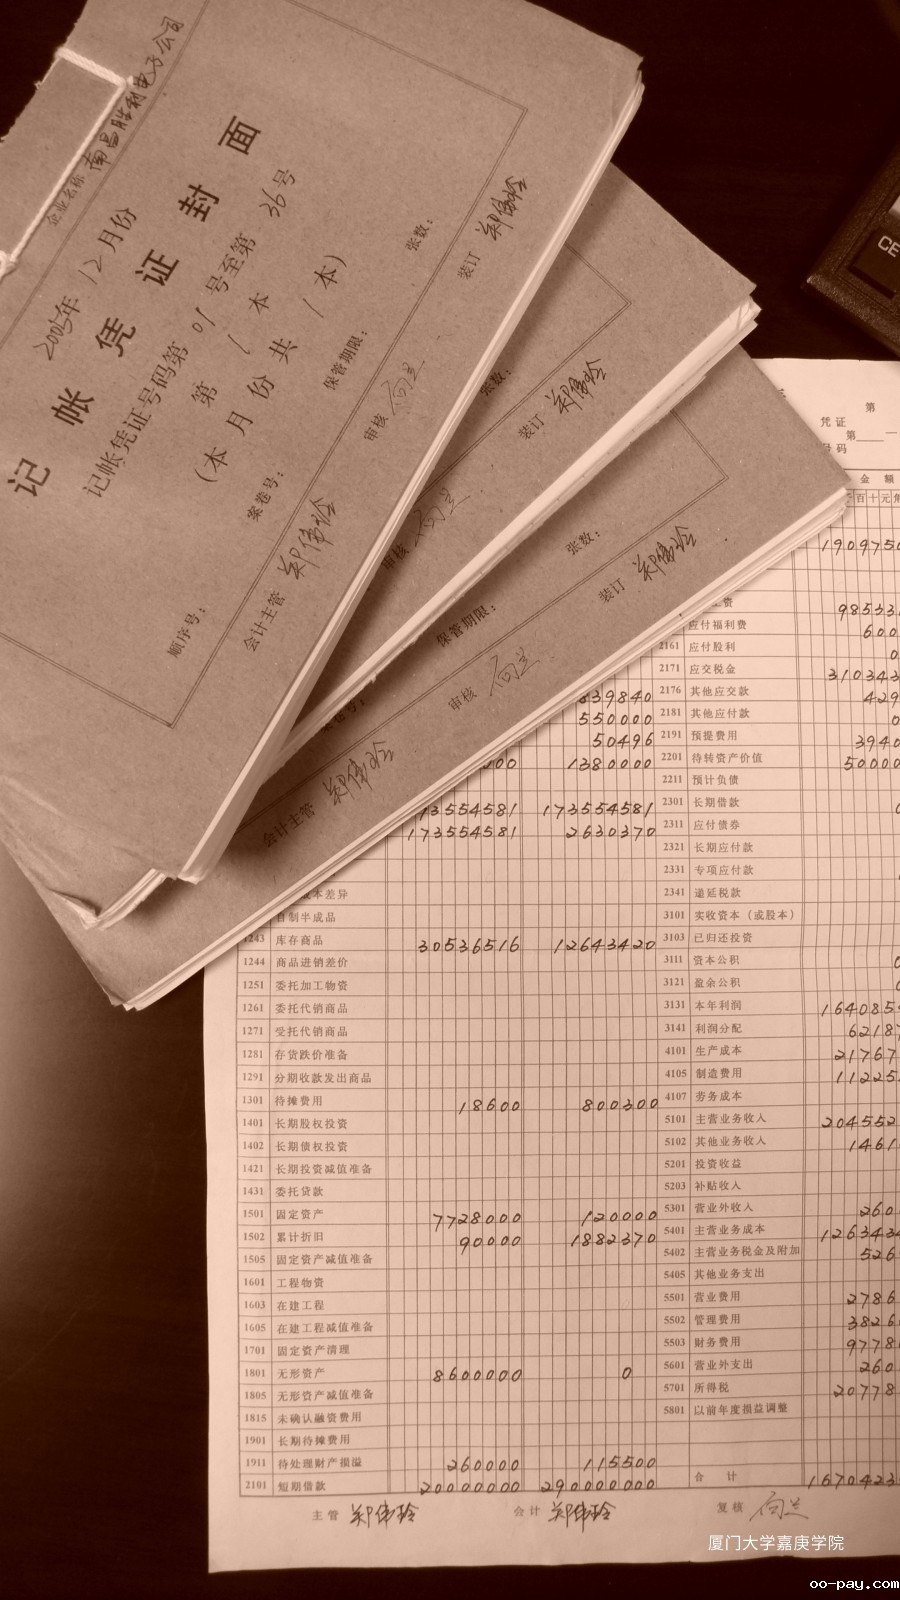 企业名称 南昌胜利电子公司
记帐凭证封面
2005年 12月份
记帐凭证号码第 01 号至第 36 号
第 1 本
(本月份共 1 本)
案卷号: 保管期限: 张数:
顺序号:
会计主管 郑伟玲 审核 装订 郑伟玲
保管期限: 张数:
审核 装订 郑伟玲
张数:
会计主管 郑伟玲 审核 装订 郑伟玲
第
凭证
号码 第
金额
百十元角
应付福利费
2161 应付股利
2171 应交税金
2176 其他应交款
2181 其他应付款
2191 预提费用
2201 待转资产价值
2211 预计负债
2301 长期借款
2311 应付债券
2321 长期应付款
2331 专项应付款
2341 递延税款
3101 实收资本(或股本)
3103 已归还投资
3111 资本公积
3121 盈余公积
3131 本年利润
3141 利润分配
4101 生产成本
4105 制造费用
4107 劳务成本
5101 主营业务收入
5102 其他业务收入
5201 投资收益
5203 补贴收入
5301 营业外收入
5401 主营业务成本
5402 主营业务税金及附加
5405 其他业务支出
5501 营业费用
5502 管理费用
5503 财务费用
5601 营业外支出
5701 所得税
5801 以前年度损益调整
合计
839840
550000
50496
1380000
173554581
173554581 2630370
成本差异
自制半成品
1243 库存商品 30536516 12643420
1244 商品进销差价
1251 委托加工物资
1261 委托代销商品
1271 受托代销商品
1281 存货跌价准备
1291 分期收款发出商品
1301 待摊费用 18600 800300
1401 长期股权投资
1402 长期债权投资
1421 长期投资减值准备
1431 委托贷款
1501 固定资产 7728000 120000
1502 累计折旧 90000 1882370
1505 固定资产减值准备
1601 工程物资
1603 在建工程
1605 在建工程减值准备
1701 固定资产清理
1801 无形资产 8600000 0
1805 无形资产减值准备
1815 未确认融资费用
1901 长期待摊费用
1911 待处理财产损溢 260000 115500
2101 短期借款 20000000 290000000
主管 郑伟玲 会计 郑伟玲 复核
厦门大学嘉庚学院
oo-pay.com